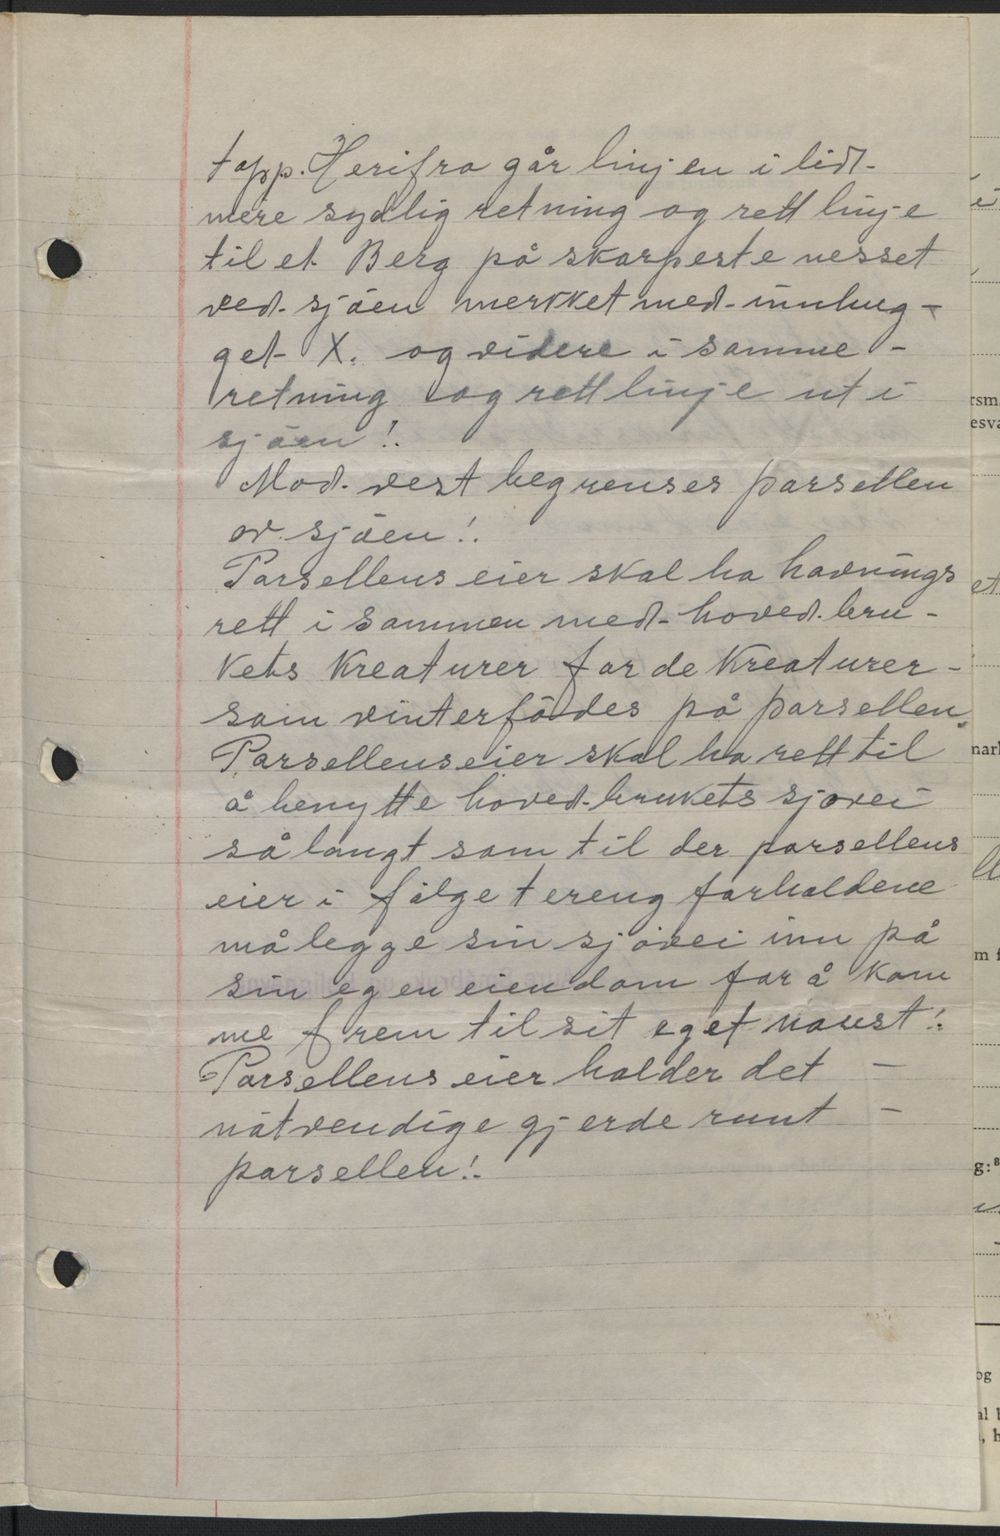 topp. Herifra går linjen i lidt-
mere sydlig retning og rett linje
til et Berg på skarpeste nesset
ved sjöen merkket med innhug-
get X. og videre i samme -
retning og rett linje ut i
sjöen!.
Mod. vest begrenses parsellen
av sjöen!.
Parsellens eier skal ha havnings
rett i sammen med hoved.bru-
kets kreaturer for de kreaturer-
som vinterfödes på parsellen.
Parsellens eier skal ha rett til
å benytte hoved-brukets sjovei
så langt som til der parsellens
eier i fölge tereng forholdene
må legge sin sjövei inn på
sin egen eiendom for å kom
me frem til sit eget naust!.
Parsellens eier holder det -
nötvendige gjerde runt -
parsellen!.
rsm
esva
et
nar
m f
g:⁸
og
al
, h